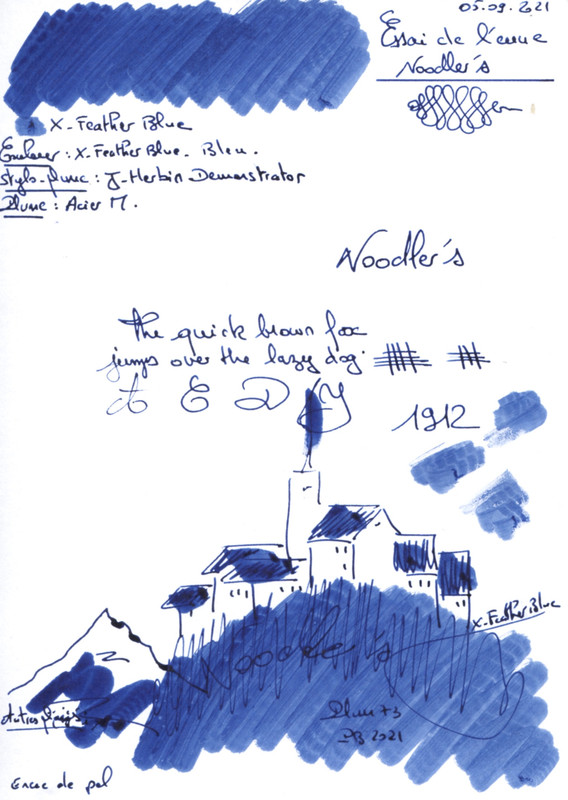 05.09.2021
Essai de l'encre
Noodler's
X-Feather Blue
Couleur : X-Feather Blue - Bleu.
Stylo-plume : J-Herbin Demonstrator
Plume : Acier M.
Noodler's
The quick brown fox
jumps over the lazy dog.
A E D Y
1912
X-Feather Blue
Noodler's
2021
Encre de